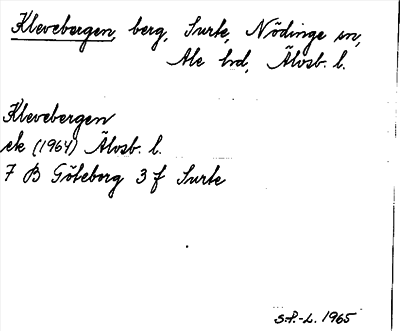 Klevebergen, berg, Surte, Nödinge sn,
Ale hd, Älvsb. l.
Klevebergen
ek (1964) Älvsb. l.
7 B Göteborg 3 f Surte
S.P.-L. 1965